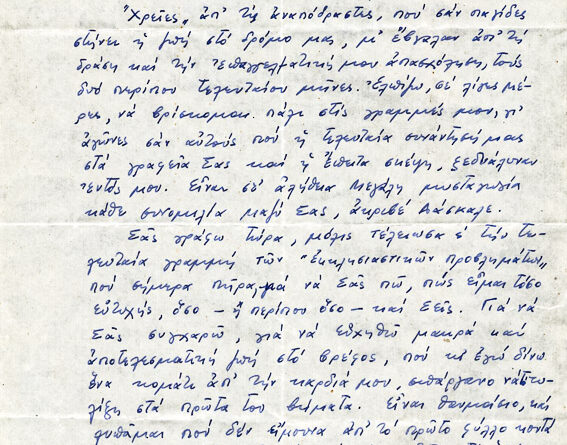 "Χρεῖες„ ἀπ' τὶς ἀναπόδραστες, ποὺ σὰν παγίδες
στήνει ἡ ζωὴ στὸ δρόμο μας, μ' ἔβγαλαν ἀπ' τὴ
δράση καὶ τὴν ἐπαγγελματική μου ἀπασχόληση, τοὺς
δυὸ περίπου τελευταίους μῆνες. Ἐλπίζω, σὲ λίγες μέ-
ρες, νὰ βρίσκομαι πάλι στὶς γραμμές μου, γι'
ἀγῶνες σὰν αὐτοὺς ποὺ ἡ τελευταία συνάντησή μας
στὰ γραφεῖα Σας καὶ ἡ ἔπειτα σκέψη, ξεδιάλυναν
ἐντός μου. Εἶναι στ' ἀλήθεια Μεγάλη μυσταγωγία
κάθε συνομιλία μαζύ Σας, ἀκριβέ Δάσκαλε.
Σᾶς γράφω τώρα, μόλις τέλειωσα τὴν τε-
λευταία γραμμὴ τῶν "Ἐκκλησιαστικῶν προβλημάτων„
ποὺ σήμερα πῆρα, γιὰ νὰ Σᾶς πῶ, πὼς εἶμαι τόσο
εὐτυχής, ὅσο – ἢ περίπου ὅσο – καὶ Σεῖς. Γιὰ νὰ
Σᾶς συγχαρῶ, γιὰ νὰ εὐχηθῶ μακρὰ καὶ
ἀποτελεσματικὴ ζωὴ στὸ βρέφος, ποὺ κι ἐγὼ δίνω
ἕνα κομάτι ἀπ' τὴν καρδιά μου, σπάργανο νὰ τυ-
λίξη στὰ πρῶτα του βήματα. Εἶναι θαυμάσιο, καὶ
λυπᾶμαι ποὺ δὲν εἴμουνα ἀπ' τὸ πρῶτο φύλλο κοντὰ